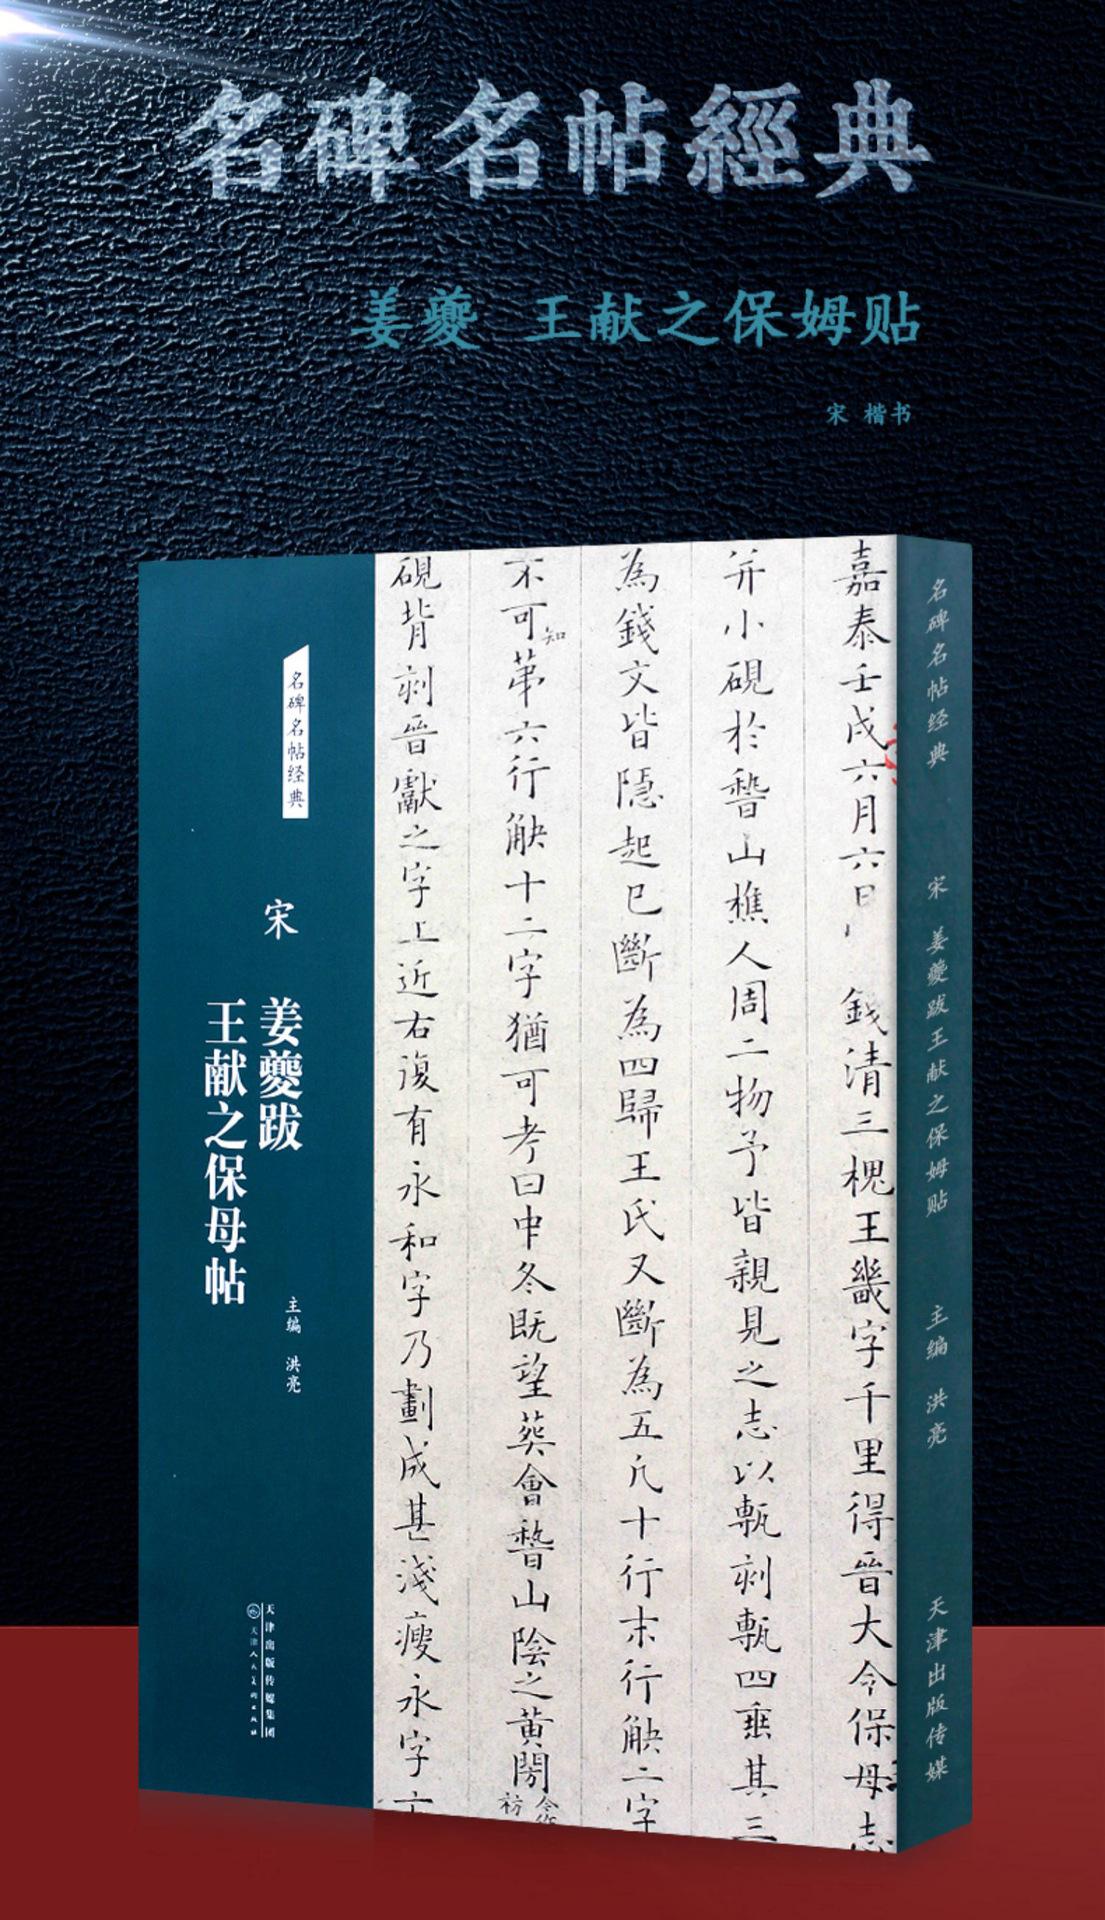 名碑名帖經典
姜夔 王献之保姆贴
宋 楷书
名碑名帖经典
宋 姜夔跋
王献之保母帖
主编 洪亮
天津出版传媒集团
天津人民美术出版社
嘉泰壬戌六月六日 錢清三槐王畿字千里得晉大令保母志
并小硯於稽山樵人周二物予皆親見之志以甎刻甎四垂其三
為錢文皆隱起已斷為四歸王氏又斷為五凡十行末行缺二字
不可知第六行缺十二字猶可考曰中冬既望葬會稽山陰之黃閍
硯背刻晉獻之字上近右復有永和字乃劃成甚淺瘦永字
名碑名帖经典 宋 姜夔跋王献之保姆贴 主编 洪亮 天津出版传媒